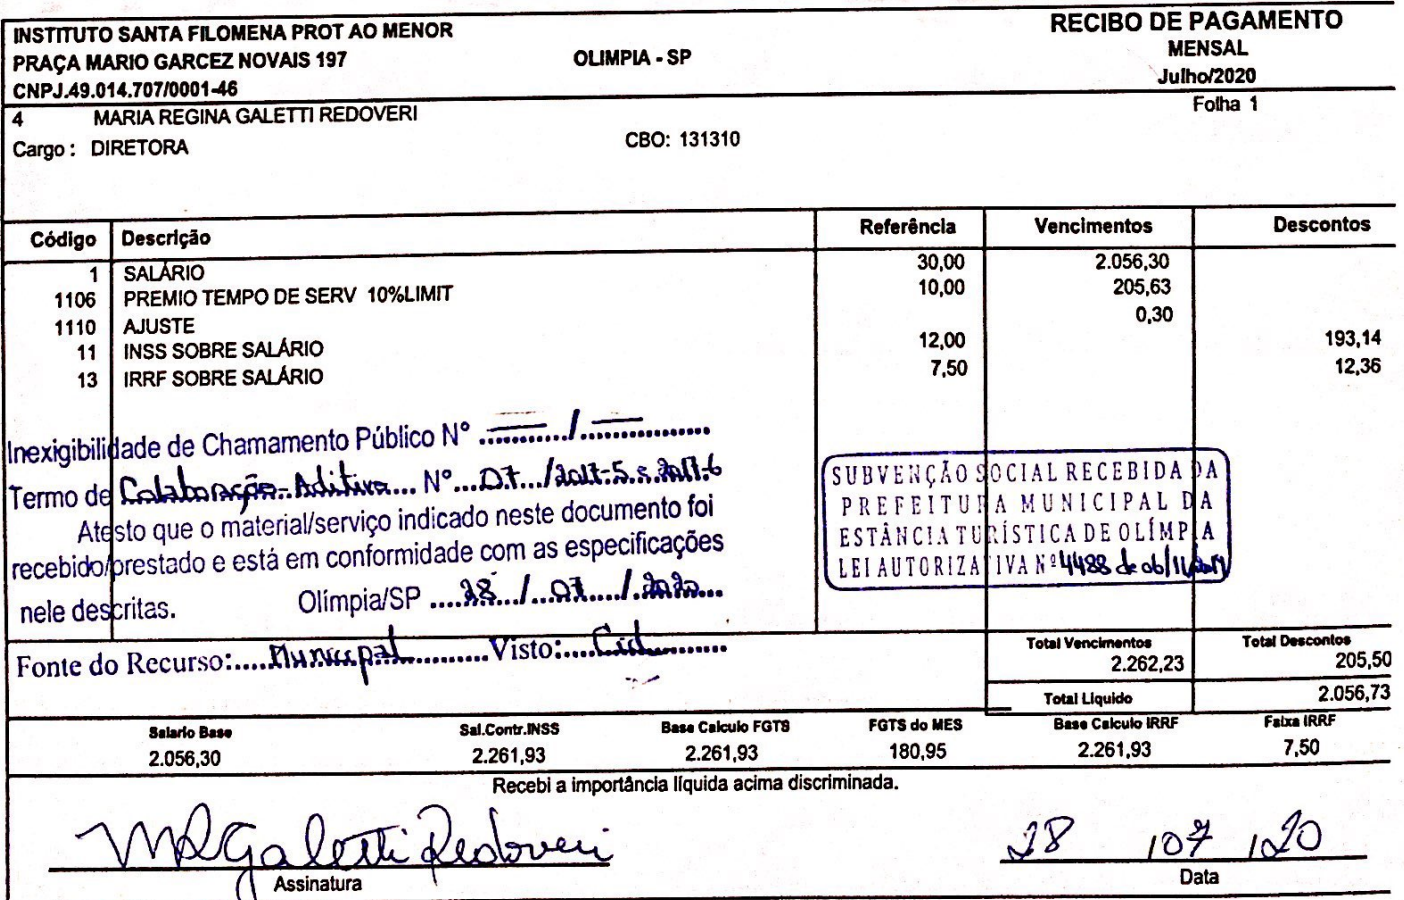 INSTITUTO SANTA FILOMENA PROT AO MENOR
PRAÇA MARIO GARCEZ NOVAIS 197 OLIMPIA - SP
CNPJ.49.014.707/0001-46
RECIBO DE PAGAMENTO
MENSAL
Julho/2020
4 MARIA REGINA GALETTI REDOVERI Folha 1
Cargo : DIRETORA CBO: 131310
Código Descrição Referência Vencimentos Descontos
1 SALÁRIO 30,00 2.056,30
1106 PREMIO TEMPO DE SERV 10%LIMIT 10,00 205,63
1110 AJUSTE 0,30
11 INSS SOBRE SALÁRIO 12,00 193,14
13 IRRF SOBRE SALÁRIO 7,50 12,36
Inexigibilidade de Chamamento Público N° ............/................
Termo de Colaboração-Aditivo.... N°....07.../2017-5 e 2017-6
Atesto que o material/serviço indicado neste documento foi
recebido/prestado e está em conformidade com as especificações
nele descritas. Olímpia/SP .....28..../....07...../.2020...
Fonte do Recurso:.....Municipal...........Visto:.....
SUBVENÇÃO SOCIAL RECEBIDA DA
PREFEITURA MUNICIPAL DA
ESTÂNCIA TURÍSTICA DE OLÍMPIA
LEI AUTORIZATIVA Nº 4488 de 06/11/2019
Total Vencimentos Total Descontos
2.262,23 205,50
Total Liquido 2.056,73
Salario Base Sal.Contr.INSS Base Calculo FGTS FGTS do MES Base Calculo IRRF Faixa IRRF
2.056,30 2.261,93 2.261,93 180,95 2.261,93 7,50
Recebi a importância líquida acima discriminada.
MRGaletti Redoveri 28 / 07 / 20
Assinatura Data